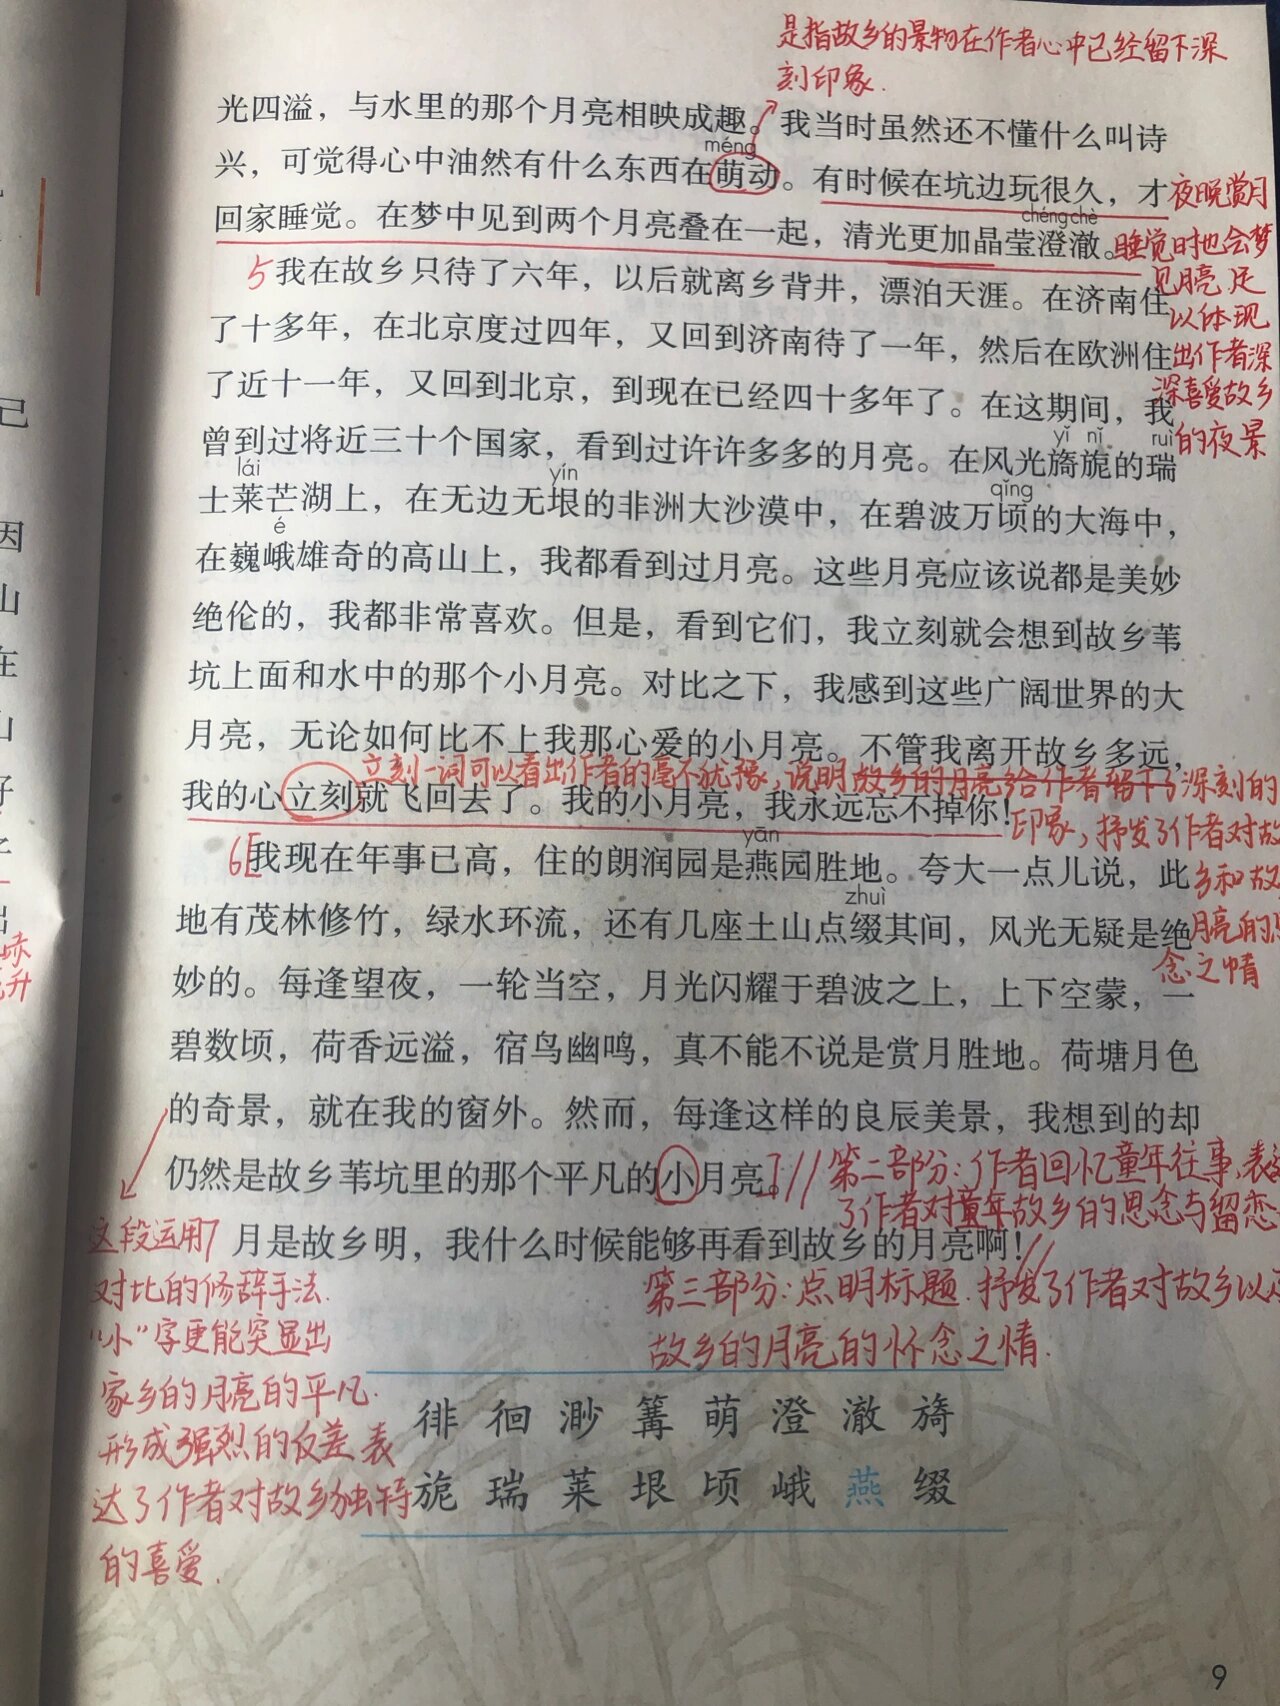 是指故乡的景物在作者心中已经留下深
刻印象.
光四溢，与水里的那个月亮相映成趣。我当时虽然还不懂什么叫诗
méng
兴，可觉得心中油然有什么东西在萌动。有时候在坑边玩很久，才
chéng chè
回家睡觉。在梦中见到两个月亮叠在一起，清光更加晶莹澄澈。
夜晚赏月
睡觉时也会梦
见月亮足
以体现
出作者深
深喜爱故乡
的夜景
5 我在故乡只待了六年，以后就离乡背井，漂泊天涯。在济南住
了十多年，在北京度过四年，又回到济南待了一年，然后在欧洲住
了近十一年，又回到北京，到现在已经四十多年了。在这期间，我
曾到过将近三十个国家，看到过许许多多的月亮。在风光旖旎的瑞
yǐ nǐ ruì
lái yín qǐng
士莱芒湖上，在无边无垠的非洲大沙漠中，在碧波万顷的大海中，
é
在巍峨雄奇的高山上，我都看到过月亮。这些月亮应该说都是美妙
绝伦的，我都非常喜欢。但是，看到它们，我立刻就会想到故乡苇
坑上面和水中的那个小月亮。对比之下，我感到这些广阔世界的大
月亮，无论如何比不上我那心爱的小月亮。不管我离开故乡多远，
立刻一词可以看出作者的毫不犹豫，说明故乡的月亮给作者留下了深刻的
我的心立刻就飞回去了。我的小月亮，我永远忘不掉你！
印象，抒发了作者对故
乡和故
月亮的
念之情
yān
6[我现在年事已高，住的朗润园是燕园胜地。夸大一点儿说，此
zhuì
地有茂林修竹，绿水环流，还有几座土山点缀其间，风光无疑是绝
妙的。每逢望夜，一轮当空，月光闪耀于碧波之上，上下空蒙，一
碧数顷，荷香远溢，宿鸟幽鸣，真不能不说是赏月胜地。荷塘月色
的奇景，就在我的窗外。然而，每逢这样的良辰美景，我想到的却
仍然是故乡苇坑里的那个平凡的小月亮。]//
第二部分：作者回忆童年往事，表
了作者对童年故乡的思念与留恋
7 月是故乡明，我什么时候能够再看到故乡的月亮啊！//
第三部分：点明标题.抒发了作者对故乡以
故乡的月亮的怀念之情.
这段运用
对比的修辞手法.
“小”字更能突显出
家乡的月亮的平凡.
形成强烈的反差表
达了作者对故乡独特
的喜爱.
徘 徊 渺 篝 萌 澄 澈 旖
旎 瑞 莱 垠 顷 峨 燕 缀
9
己
因
山
在
山
好